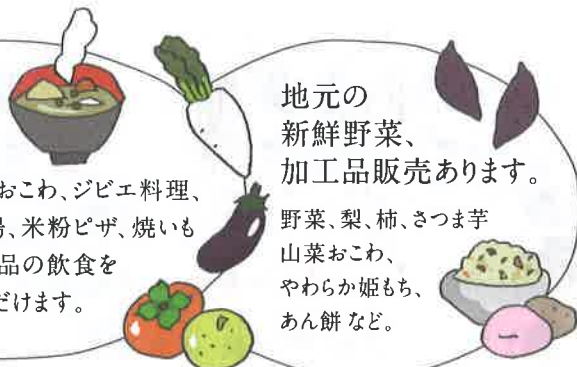 おこわ、ジビエ料理、
、米粉ピザ、焼いも
品の飲食を
だけます。
地元の
新鮮野菜、
加工品販売あります。
野菜、梨、柿、さつま芋
山菜おこわ、
やわらか姫もち、
あん餅 など。